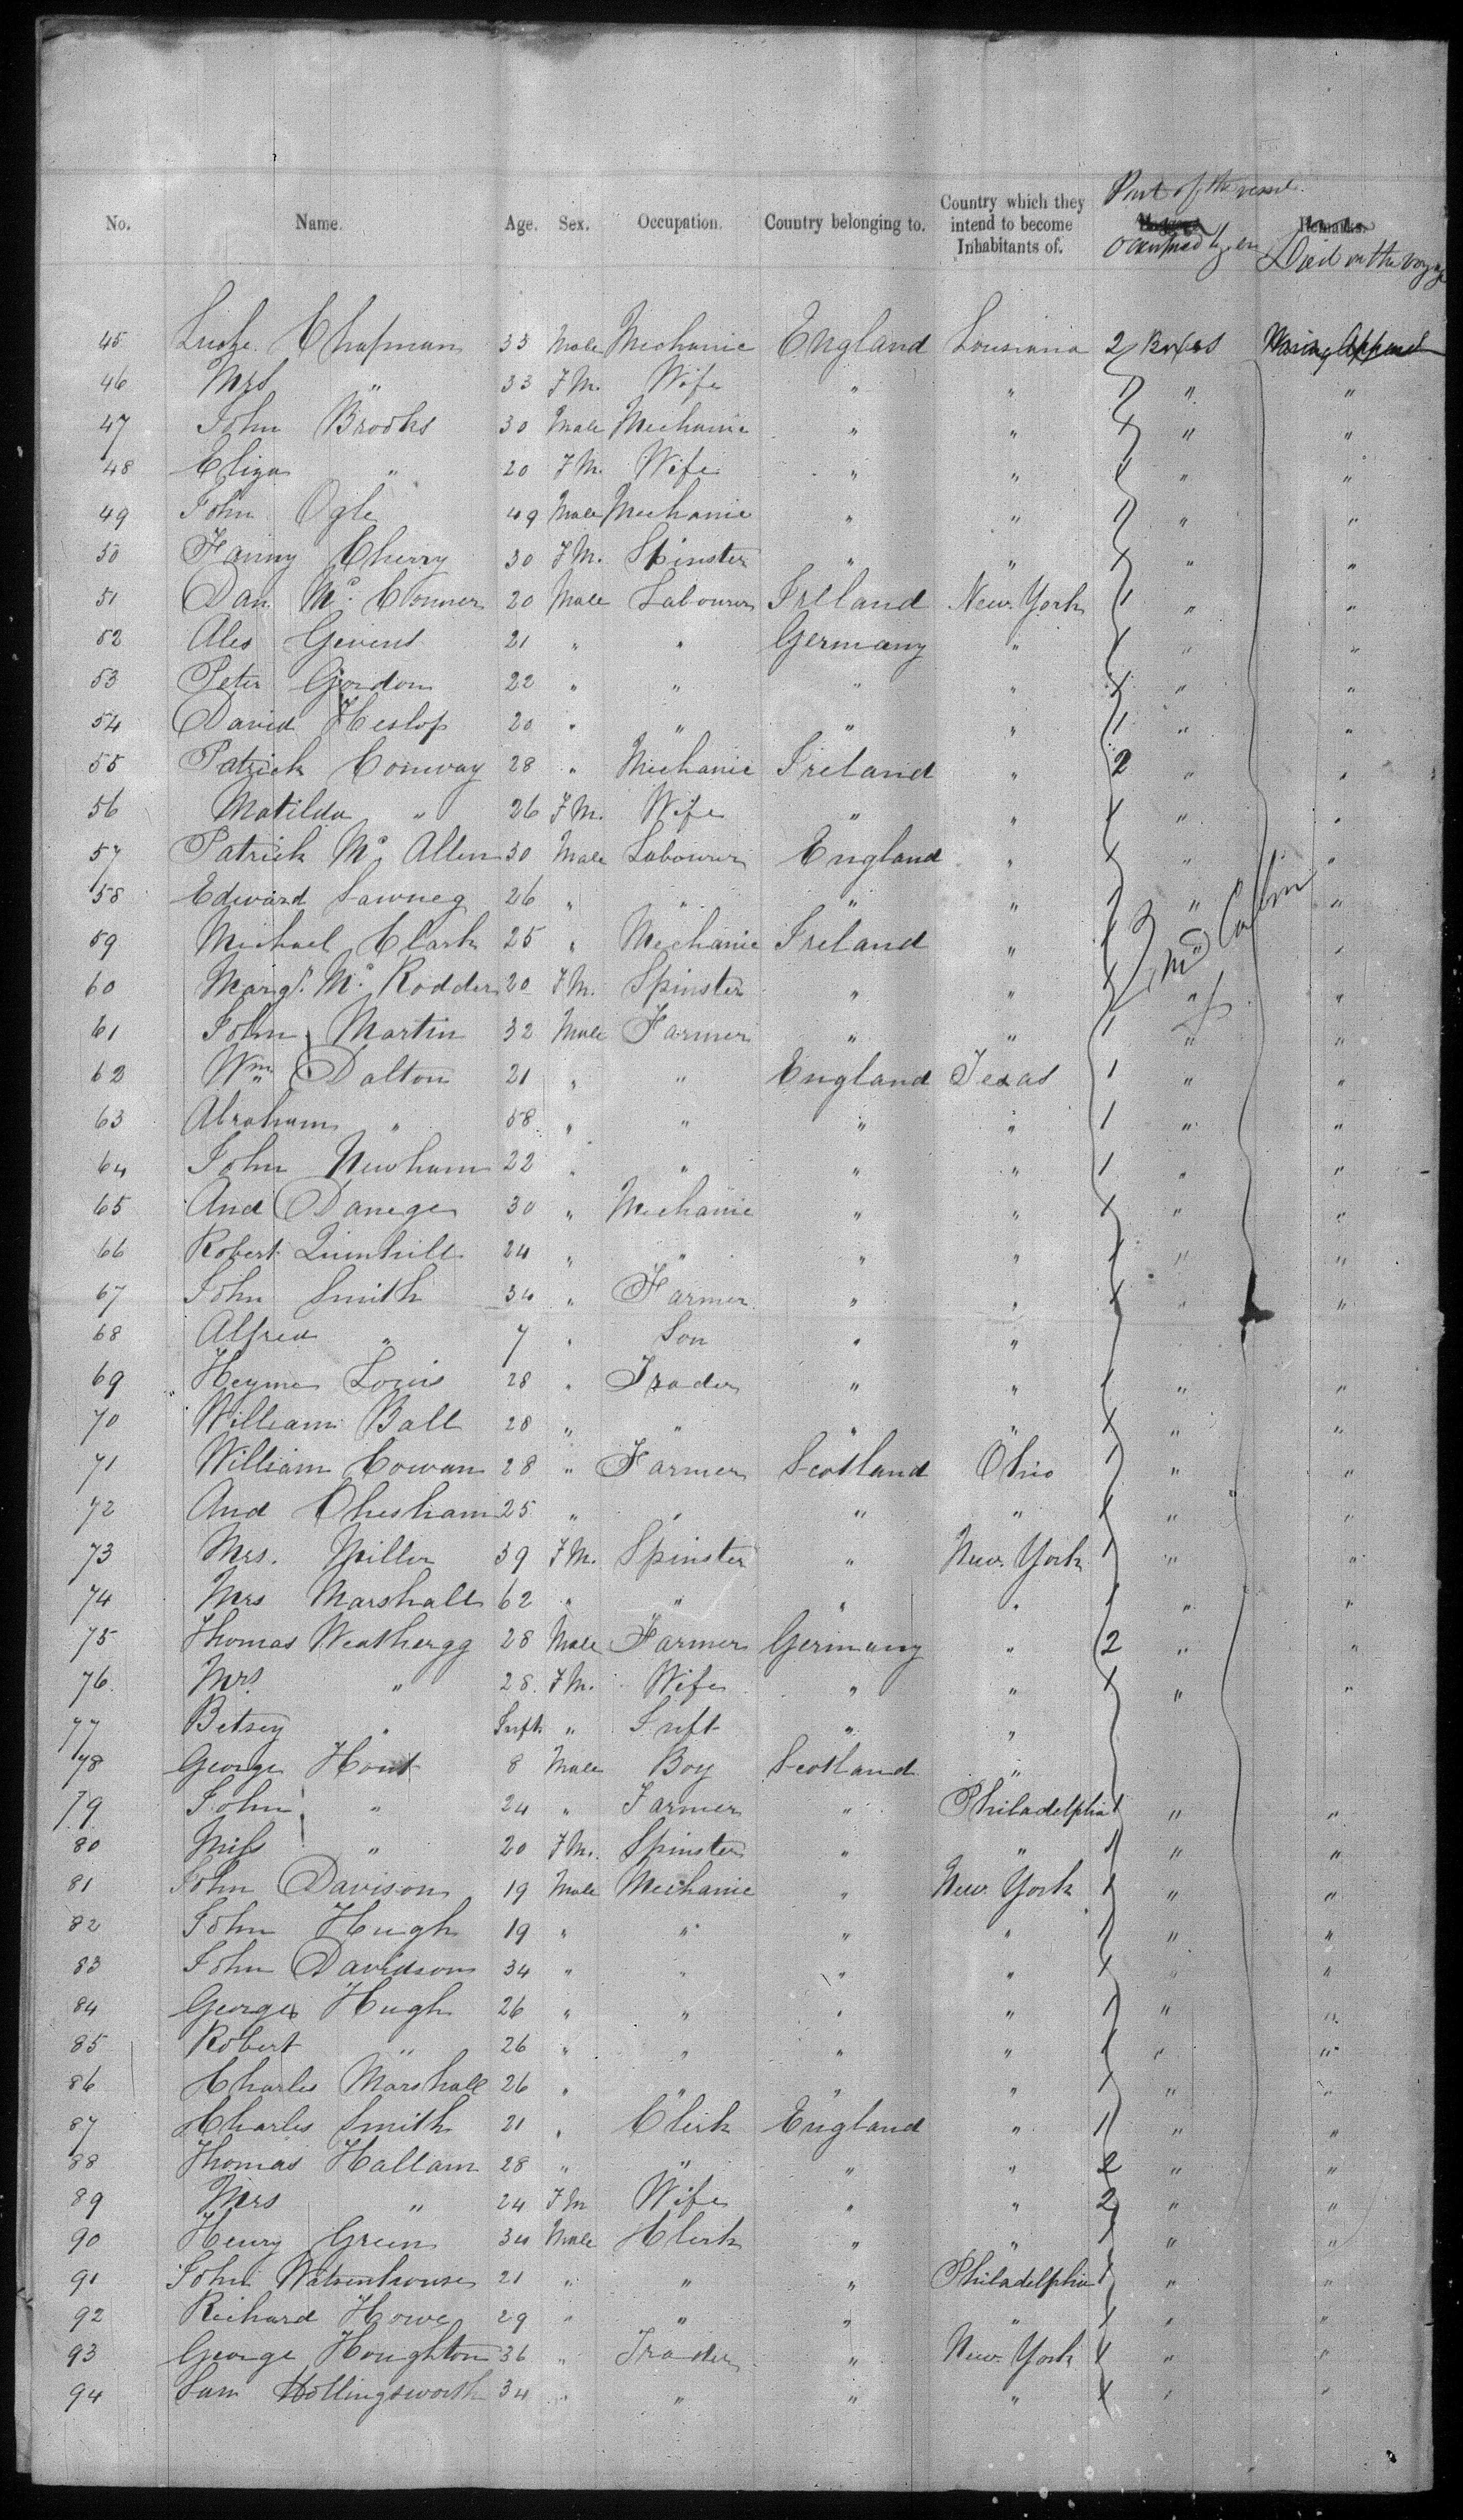 Part of the vessel
No. Name. Age. Sex. Occupation. Country belonging to. Country which they intend to become Inhabitants of. occupied by Remarks.
Died on the voyage
45 Chapman 33 Male Mechanic England Lousiana 2 Boxes
46 Mrs " 33 FM. Wife " " 1 " "
47 John Brooks 30 Male Mechanic " " 1 " "
48 Eliza " 20 FM. Wife " " 1 " "
49 John Ogle 49 Male Mechanic " " 1 " "
50 Fanny Cherry 30 FM. Spinster " " 1 " "
51 Dan Mc. Conner 20 Male Labourer Ireland New York 1 " "
52 Alex Gevens 21 " " Germany " 1 " "
53 Peter Gordon 22 " " " " 1 " "
54 David Heslop 20 " " " " 1 " "
55 Patrick Conway 28 " Mechanic Ireland " 2 " "
56 Matilda " 26 FM. Wife " " 1 " "
57 Patrick Mc Allen 30 Male Labourer England " 1 " "
58 Edward Sawney 26 " " " " 1 " "
59 Michael Clark 25 " Mechanic Ireland " 1 " "
60 Margt. Mc Rodden 20 FM. Spinster " " 1 " "
61 John Martin 32 Male Farmer " " 1 " "
62 Wm Dalton 21 " " England Texas 1 " "
63 Abraham " 58 " " " " 1 " "
64 John Newham 22 " " " " 1 " "
65 And Danege 30 " Mechanic " " 1 " "
66 Robert 24 " " " " 1 " "
67 John Smith 34 " Farmer " " 1 " "
68 Alfred " 7 " Son " "
69 Heyman Louis 28 " Trader " " 1 " "
70 William Ball 28 " " " " 1 " "
71 William Cowan 28 " Farmer Scotland Ohio 1 " "
72 And Chesham 25 " " " " 1 " "
73 Mrs. Miller 39 FM. Spinster " New York 1 " "
74 Mrs Marshall 62 " " " " 1 " "
75 Thomas Weathergg 28 Male Farmer Germany " 2 " "
76 Mrs " 28 FM. Wife " " 1 " "
77 Betsey " Inft " Inft " "
78 George Hout 8 Male Boy Scotland "
79 John " 24 " Farmer " Philadelphia 1 " "
80 Miss " 20 FM. Spinster " " 1 " "
81 John Davison 19 Male Mechanic " New York 1 " "
82 John Hugh 19 " " " " 1 " "
83 John Davidson 34 " " " " 1 " "
84 George Hugh 26 " " " " 1 " "
85 Robert " 26 " " " " 1 " "
86 Charles Marshall 26 " " " " 1 " "
87 Charles Smith 21 " Clerk England " 1 " "
88 Thomas Hallam 28 " " " " 2 " "
89 Mrs " 24 FM Wife " " 2 " "
90 Henry Green 34 Male Clerk " " 1 " "
91 John Watsenhouse 21 " " " Philadelphia 1 " "
92 Richard Howe 29 " " " " 1 " "
93 George Houghton 36 " Trader " New York 1 " "
94 Sam Hollingsworth 34 " " " " 1 " "